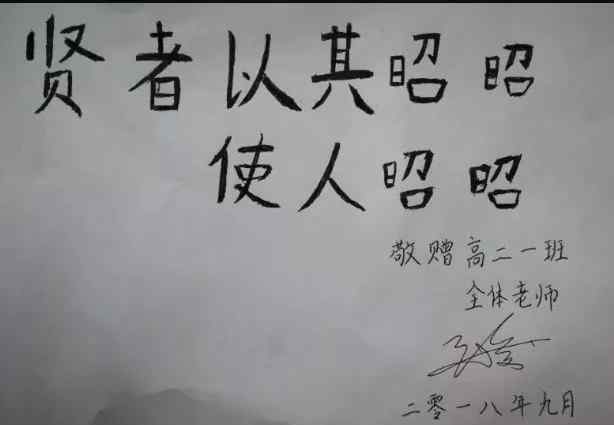 贤者以其昭昭
使人昭昭
敬赠高二一班
全体老师
二零一八年九月